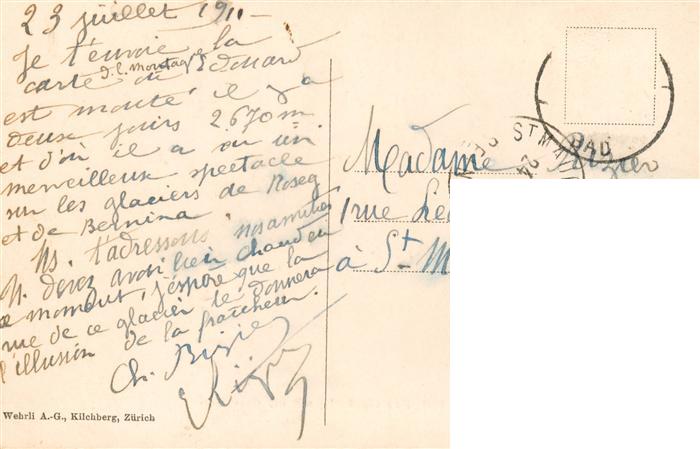 23 juillet 1911
Je t'envoie la
carte d. l. montag. où Edouard
est monté il y a
deux jours 2.670m
et d'où il a vu un
merveilleux spectacle
sur les glaciers de Roseg
et de Bernina.
Ns. t'adressons nos amitiés
V. devez avoir bien chaud en
ce moment, j'espère que la
vue de ce glacier te donnera
l'illusion de la fraîcheur.
Ch.
Wehrli A.-G., Kilchberg, Zürich
ST. M
BAD
24
Madame
1 rue
à St-M